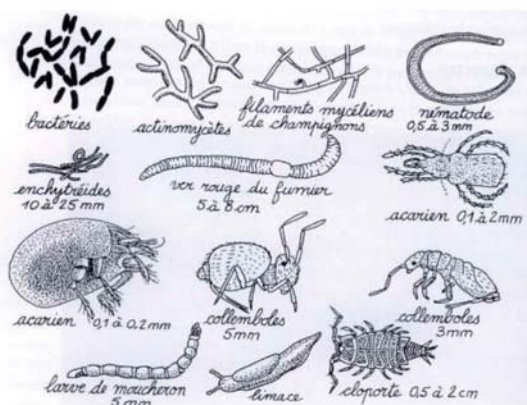 bactéries
actinomycètes
filaments mycéliens
de champignons
nématode
0,5 à 3 mm
enchytréides
10 à 25 mm
ver rouge du fumier
5 à 8 cm
acarien 0,1 à 2 mm
acarien 0,1 à 0,2 mm
collemboles
5 mm
collemboles
3 mm
larve de moucheron
5 mm
limace
cloporte 0,5 à 2 cm